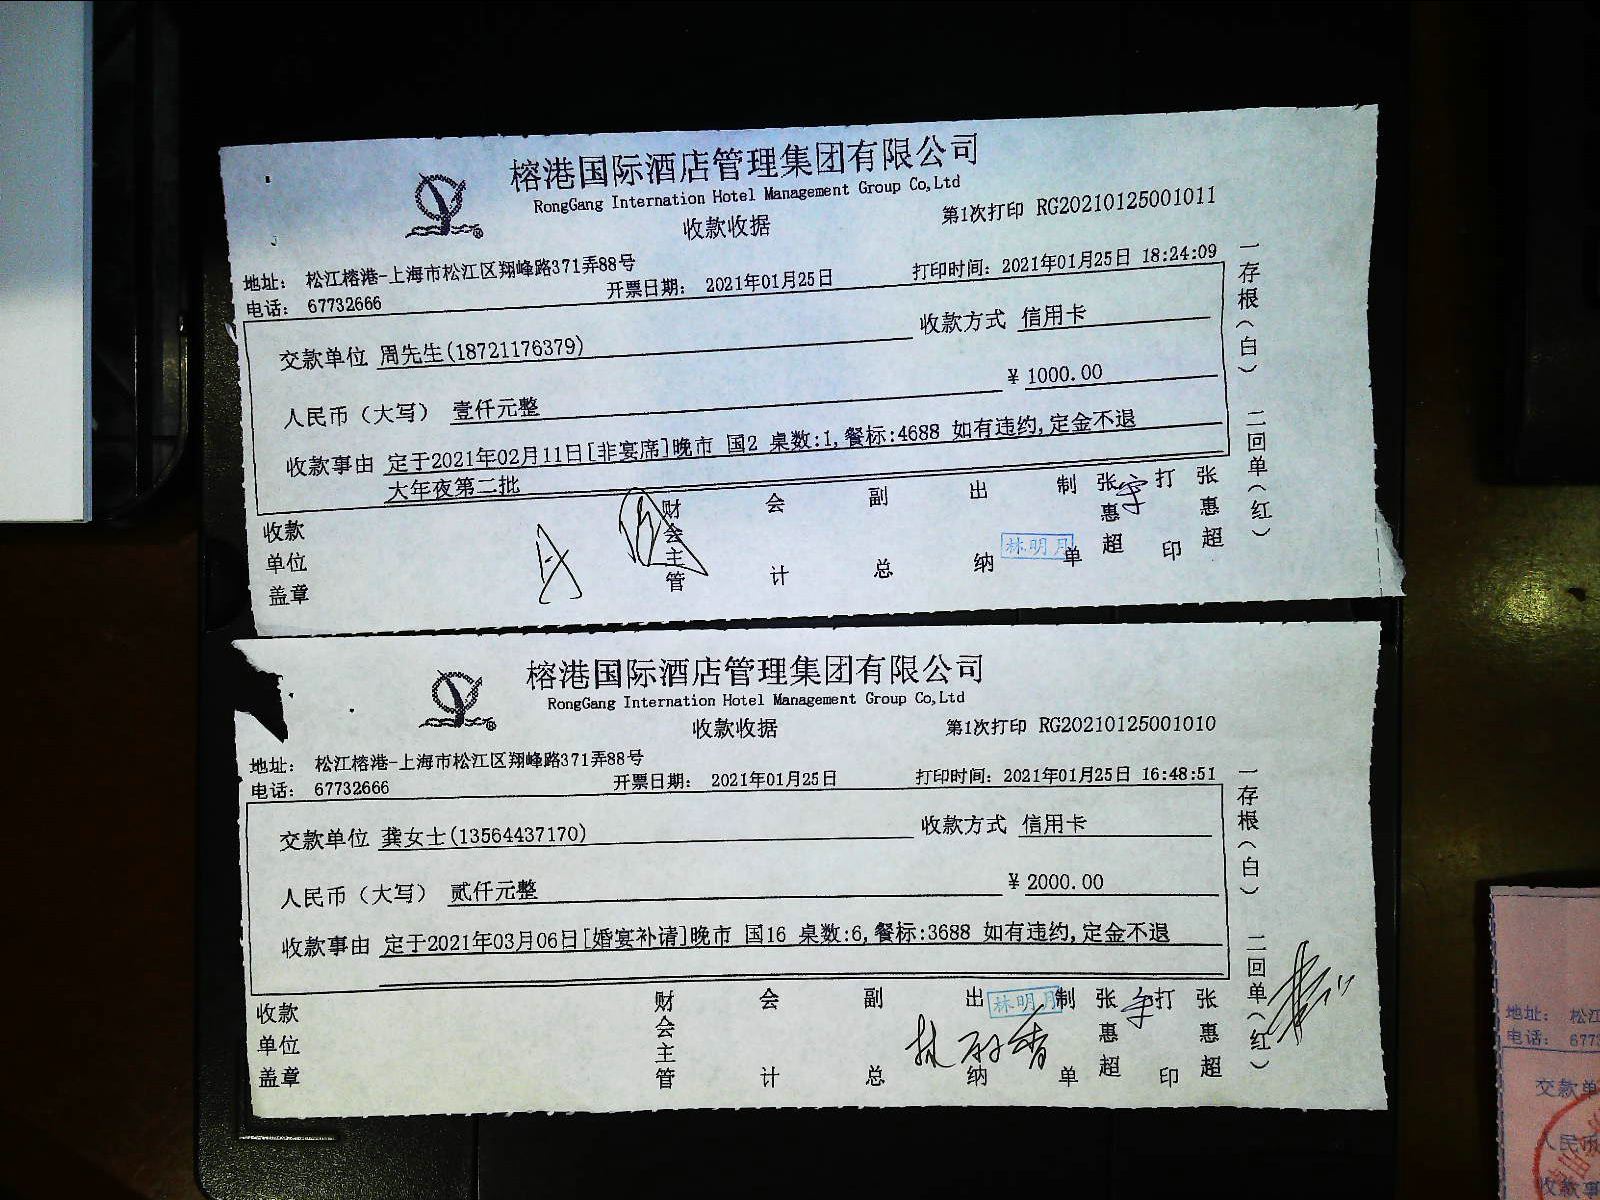 榕港国际酒店管理集团有限公司
RongGang Internation Hotel Management Group Co,Ltd
收款收据
第1次打印 RG20210125001011
地址： 松江榕港-上海市松江区翔峰路371弄88号
电话： 67732666
开票日期： 2021年01月25日
打印时间：2021年01月25日 18:24:09
交款单位 周先生(18721176379)
收款方式 信用卡
人民币（大写） 壹仟元整
￥ 1000.00
收款事由 定于2021年02月11日[非宴席]晚市 国2 桌数:1,餐标:4688 如有违约,定金不退
大年夜第二批
收款单位盖章
财会主管
会计
副总
出纳
林明月
制单
张惠超
打印
张惠超
一存根（白） 二回单（红）
榕港国际酒店管理集团有限公司
RongGang Internation Hotel Management Group Co,Ltd
收款收据
第1次打印 RG20210125001010
地址： 松江榕港-上海市松江区翔峰路371弄88号
电话： 67732666
开票日期： 2021年01月25日
打印时间：2021年01月25日 16:48:51
交款单位 龚女士(13564437170)
收款方式 信用卡
人民币（大写） 贰仟元整
￥ 2000.00
收款事由 定于2021年03月06日[婚宴补请]晚市 国16 桌数:6,餐标:3688 如有违约,定金不退
收款单位盖章
财会主管
会计
副总
出纳
林明月
制单
张惠超
打印
张惠超
一存根（白） 二回单（红）
地址： 松江
电话： 677
交款单
人民币
收款事